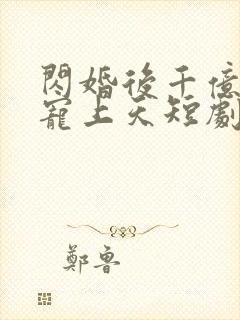 閃婚後千億
寵上天短劇
鄭魯